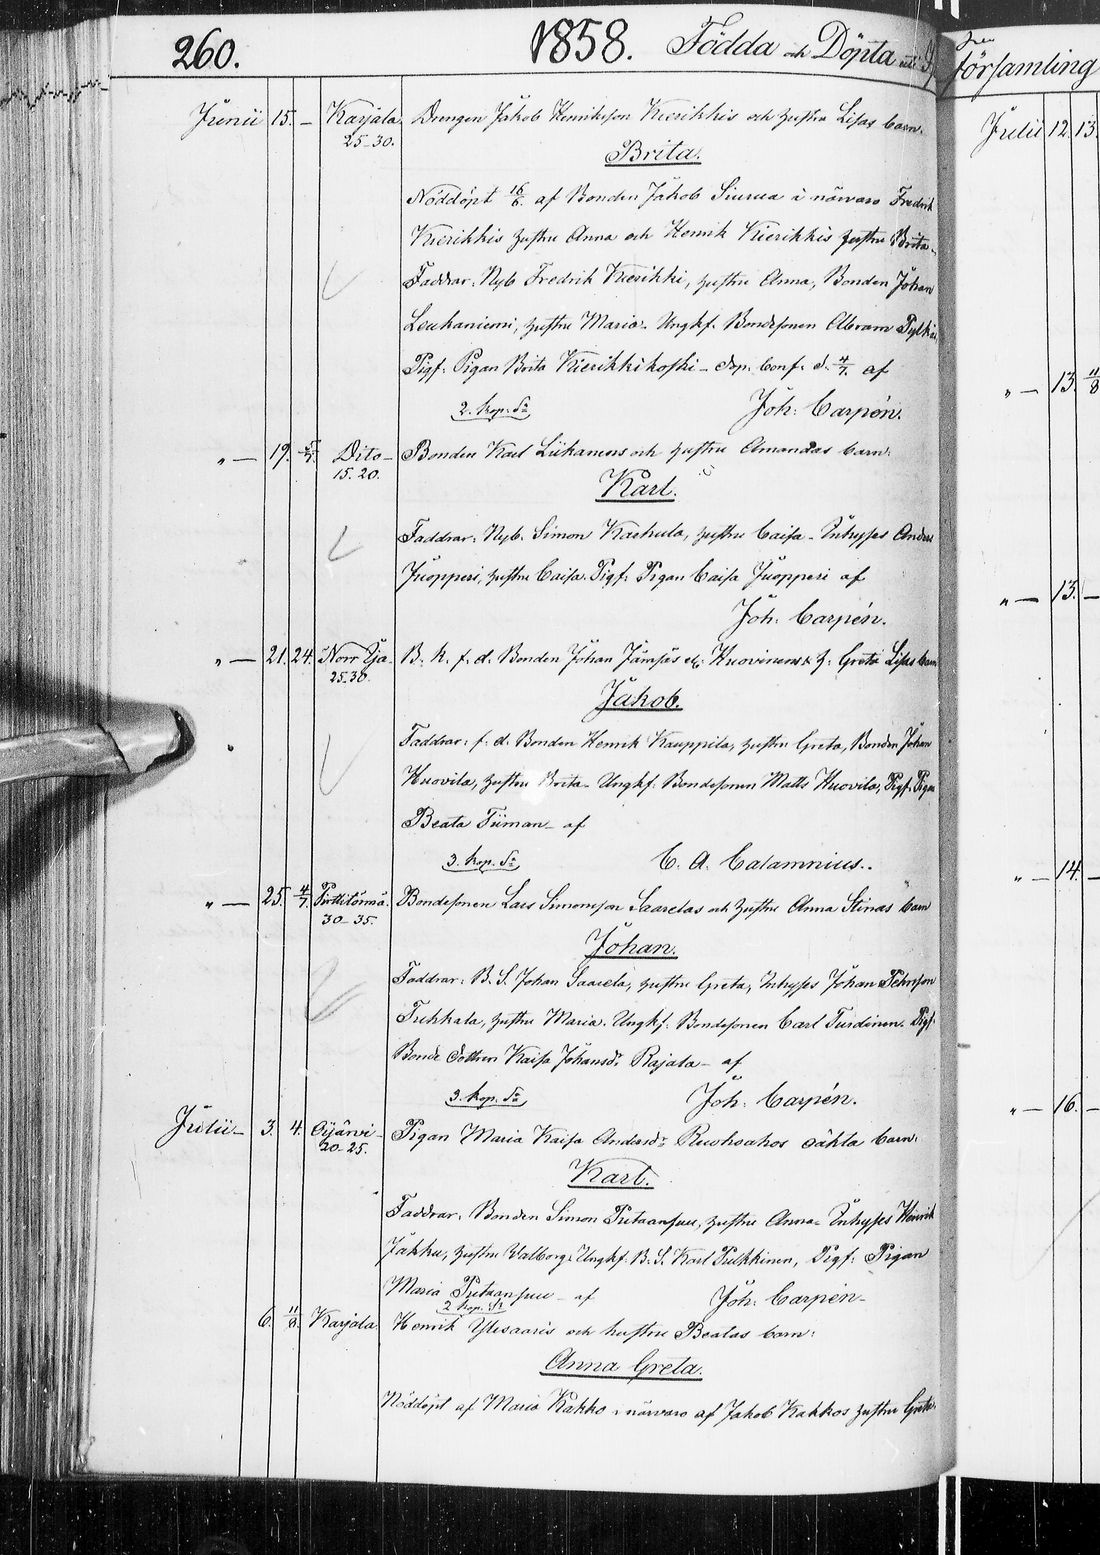 260. 1858. Födda och Döpta
Junii 15. – Karjala Drengen Jakob Henrikson Kierikkis och hustru Lisas barn.
25–30. Brita.
Nöddöpt 16/6. af Bonden Jakob Siurua i närvaro Fredrik
Kierikkis hustru Anna och Henrik Kierikkis hustru Brita
Faddrar: Nyb Fredrik Kierikki, hustru Anna, Bonden Johan
Leukaniemi, hustru Maria. Ungkf. Bondesonen Abram
Pigf. Pigan Brita Kierikkikoski – Dop. Conf. d. 4/7. af
2. kop. Joh: Carpén.
" — 19. Dito – Bonden Karl och hustru Amandas barn:
15. 20. Karl.
Faddrar: Nyb. Simon Karhula, hustru Caisa – Inhyses Anders
Juopperi, hustru Caisa. Pigf. Pigan Caisa Juopperi af
Joh. Carpén.
" — 21. 24. Norr Ija B. K. f. d. Bonden Johan Jämsäs Kuovinens h. Greta Lisas barn
25–30. Jakob.
Faddrar: f. d. Bonden Henrik Kauppila, hustru Greta, Bonden Johan
Kuovila, hustru Brita – Ungkf. Bondesonen Matts Kuovila, Pigf. Pigan
Beata Tiiman – af
3. kop. C. A. Calamnius..
" — 25. 4/7. Pirttitörmä. Bondesonen Lars Simonson Saarelas och hustru Anna Stinas barn
30–35. Johan.
Faddrar: B. S. Johan Saarela, hustru Greta, Inhyses Johan Pehrson
Tuhkala, hustru Maria. Ungkf. Bondesonen Carl Turdinen. Pigf.
Bonde Dottren Kaisa Johansdr Rajala – af
3. kop. Joh: Carpén.
Julii – 3. 4. Oijärvi – Pigan Maria Kaisa Andersdr oäkta barn:
20–25. Karl.
Faddrar: Bonden Simon Pietaansuu, hustru Anna – Inhyses Henrik
Jakku, hustru Valborg. Ungkf. B. S. Karl Pulkkinen, Pigf. Pigan
Maria Pietaansuu – af Joh: Carpén –
2 kop.
6. 11/8. Karjala Henrik Ylisaaris och hustru Beatas barn:
Anna Greta.
Nöddöpt af Maria Kakko i närvaro af Jakob Kakkos hustru Greta.
församling
Julii 12. 13.
" — 13. 11/8
" — 13. –
" — 14. –
" — 16. –